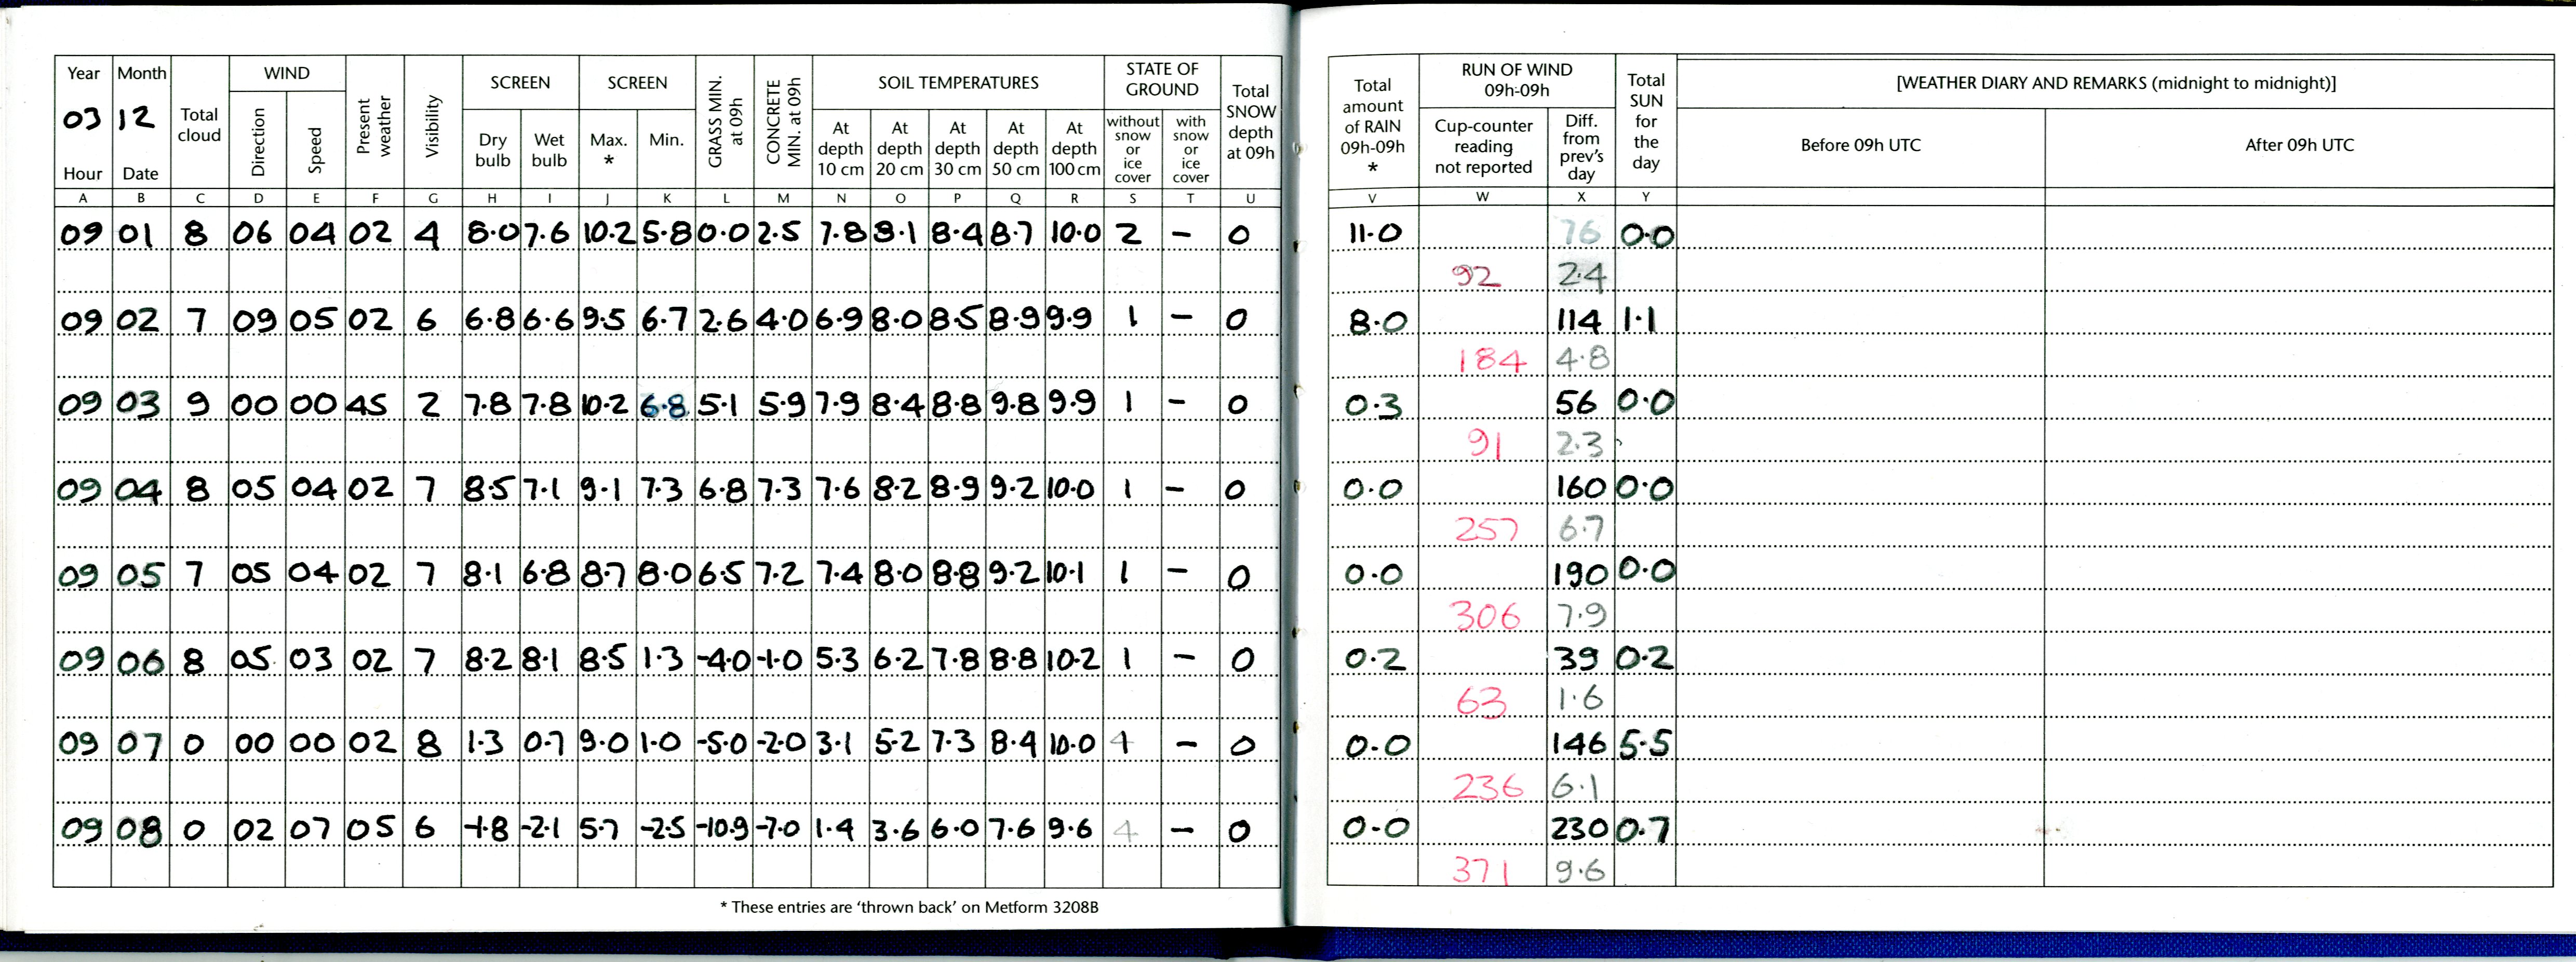 Year Month Total cloud WIND Present weather Visibility SCREEN SCREEN GRASS MIN. at 09h CONCRETE MIN. at 09h SOIL TEMPERATURES STATE OF GROUND Total SNOW depth at 09h Total amount of RAIN 09h-09h * RUN OF WIND 09h-09h Total SUN for the day [WEATHER DIARY AND REMARKS (midnight to midnight)]
03 12
Hour Date Direction Speed Dry bulb Wet bulb Max. * Min. At depth 10 cm At depth 20 cm At depth 30 cm At depth 50 cm At depth 100 cm without snow or ice cover with snow or ice cover Cup-counter reading not reported Diff. from prev's day Before 09h UTC After 09h UTC
A B C D E F G H I J K L M N O P Q R S T U V W X Y
09 01 8 06 04 02 4 8.0 7.6 10.2 5.8 0.0 2.5 7.8 8.1 8.4 8.7 10.0 2 – 0 11.0 76 0.0
92 2.4
09 02 7 09 05 02 6 6.8 6.6 9.5 6.7 2.6 4.0 6.9 8.0 8.5 8.9 9.9 1 – 0 8.0 114 1.1
184 4.8
09 03 9 00 00 45 2 7.8 7.8 10.2 6.8 5.1 5.9 7.9 8.4 8.8 9.8 9.9 1 – 0 0.3 56 0.0
91 2.3
09 04 8 05 04 02 7 8.5 7.1 9.1 7.3 6.8 7.3 7.6 8.2 8.9 9.2 10.0 1 – 0 0.0 160 0.0
257 6.7
09 05 7 05 04 02 7 8.1 6.8 8.7 8.0 6.5 7.2 7.4 8.0 8.8 9.2 10.1 1 – 0 0.0 190 0.0
306 7.9
09 06 8 05 03 02 7 8.2 8.1 8.5 1.3 -4.0 -1.0 5.3 6.2 7.8 8.8 10.2 1 – 0 0.2 39 0.2
63 1.6
09 07 0 00 00 02 8 1.3 0.7 9.0 1.0 -5.0 -2.0 3.1 5.2 7.3 8.4 10.0 4 – 0 0.0 146 5.5
236 6.1
09 08 0 02 07 05 6 -1.8 -2.1 5.7 -2.5 -10.9 -7.0 1.4 3.6 6.0 7.6 9.6 4 – 0 0.0 230 0.7
371 9.6
* These entries are 'thrown back' on Metform 3208B